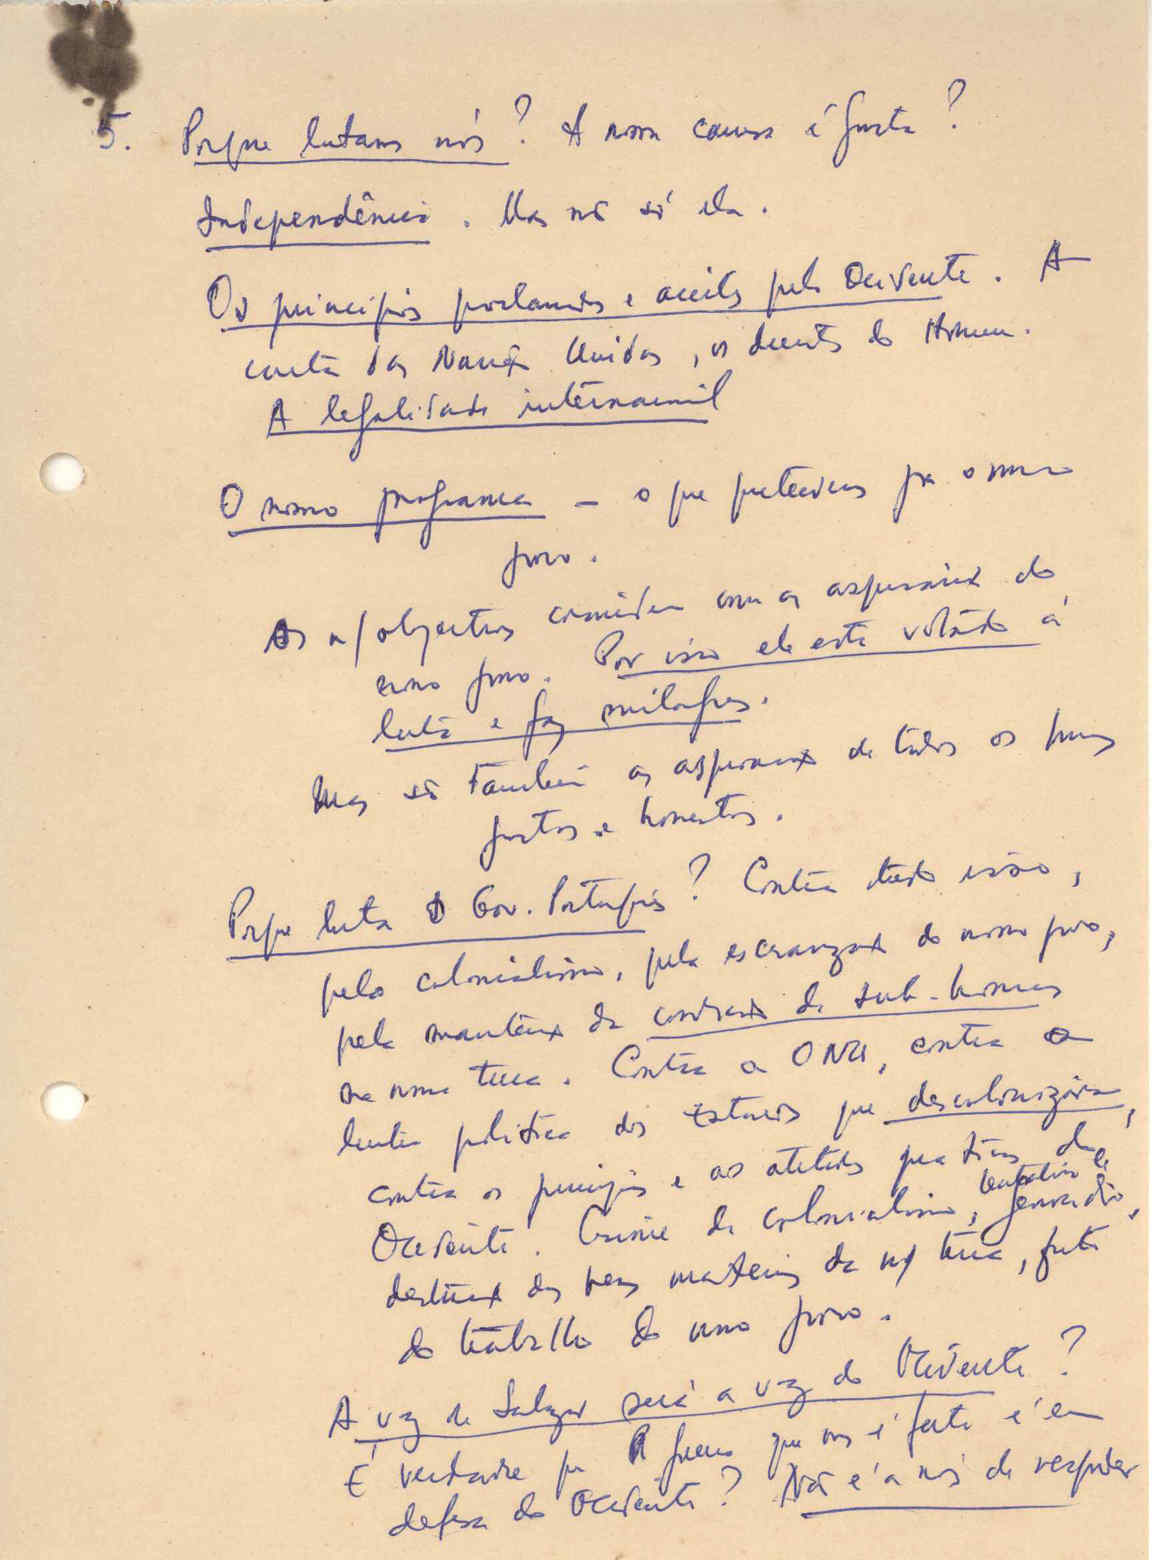 5. Porque lutamos nós? A nossa causa é justa?
Independência. Mas não só ela.
Os princípios proclamados e aceites pelo Ocidente. A
carta das Nações Unidas, os direitos do Homem.
A legalidade internacional
O nosso programa — o que pretendemos para o nosso
povo.
Os n/objectivos coincidem com as aspirações do
nosso povo. Por isso ele está votado à
luta e faz milagres.
Mas são também as aspirações de todos os povos
justos e honestos.
Porque luta o Gov. Português? Contra tudo isso,
pelo colonialismo, pela escravização do nosso povo,
pela manutenção da condição de sub-homens
na nossa terra. Contra a ONU, contra a
política dos Estados que descolonizaram,
contra os princípios e as atitudes práticas do
Ocidente. Crime de colonialismo, tentativa de
genocídio,
destruição dos bens materiais da n/ terra, fruto
do trabalho do nosso povo.
A voz de Salazar será a voz do Ocidente?
É verdade que a guerra que nos é feita é em
defesa do Ocidente? Não é a nós de responder